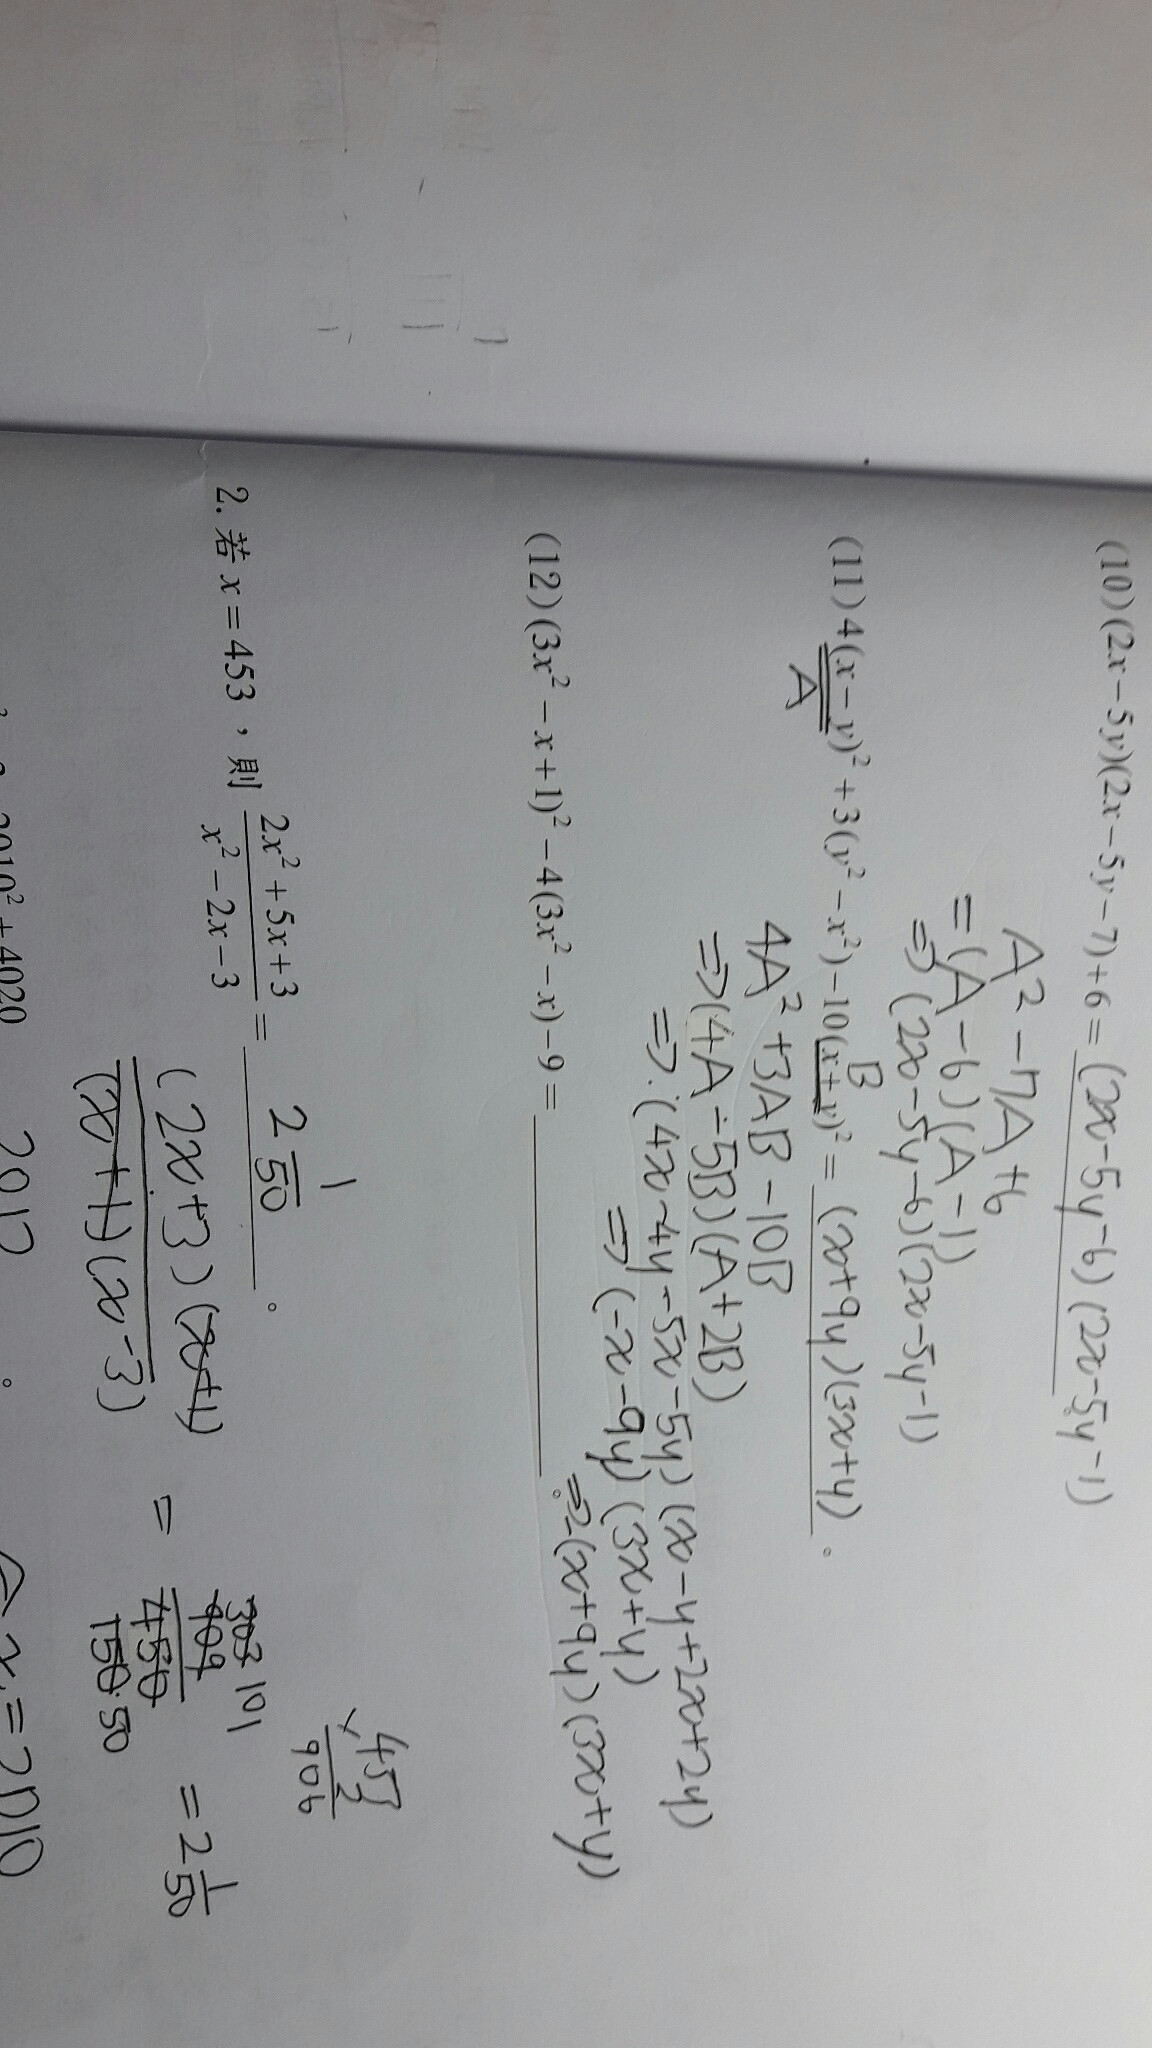 (10)(2x-5y)(2x-5y-7)+6=(2x-5y-6)(2x-5y-1)
A²-7A+6
=(A-6)(A-1)
⇒(2x-5y-6)(2x-5y-1)
(11)4(x-y)²+3(y²-x²)-10(x+y)²=(x+9y)(3x+y)。
A
B
4A²+3AB-10B
⇒(4A-5B)(A+2B)
⇒(4x-4y-5x-5y)(x-y+2x+2y)
⇒(-x-9y)(3x+y)
⇒-(x+9y)(3x+y)
(12)(3x²-x+1)²-4(3x²-x)-9=。
453
×2
906
2. 若x=453,則(2x²+5x+3)/(x²-2x-3)=2 1/50。
(2x+3)(x+1)/(x+1)(x-3) = 909/450 = 2 1/50
303 101
150 50
2010²+4020
2012。
x=2010